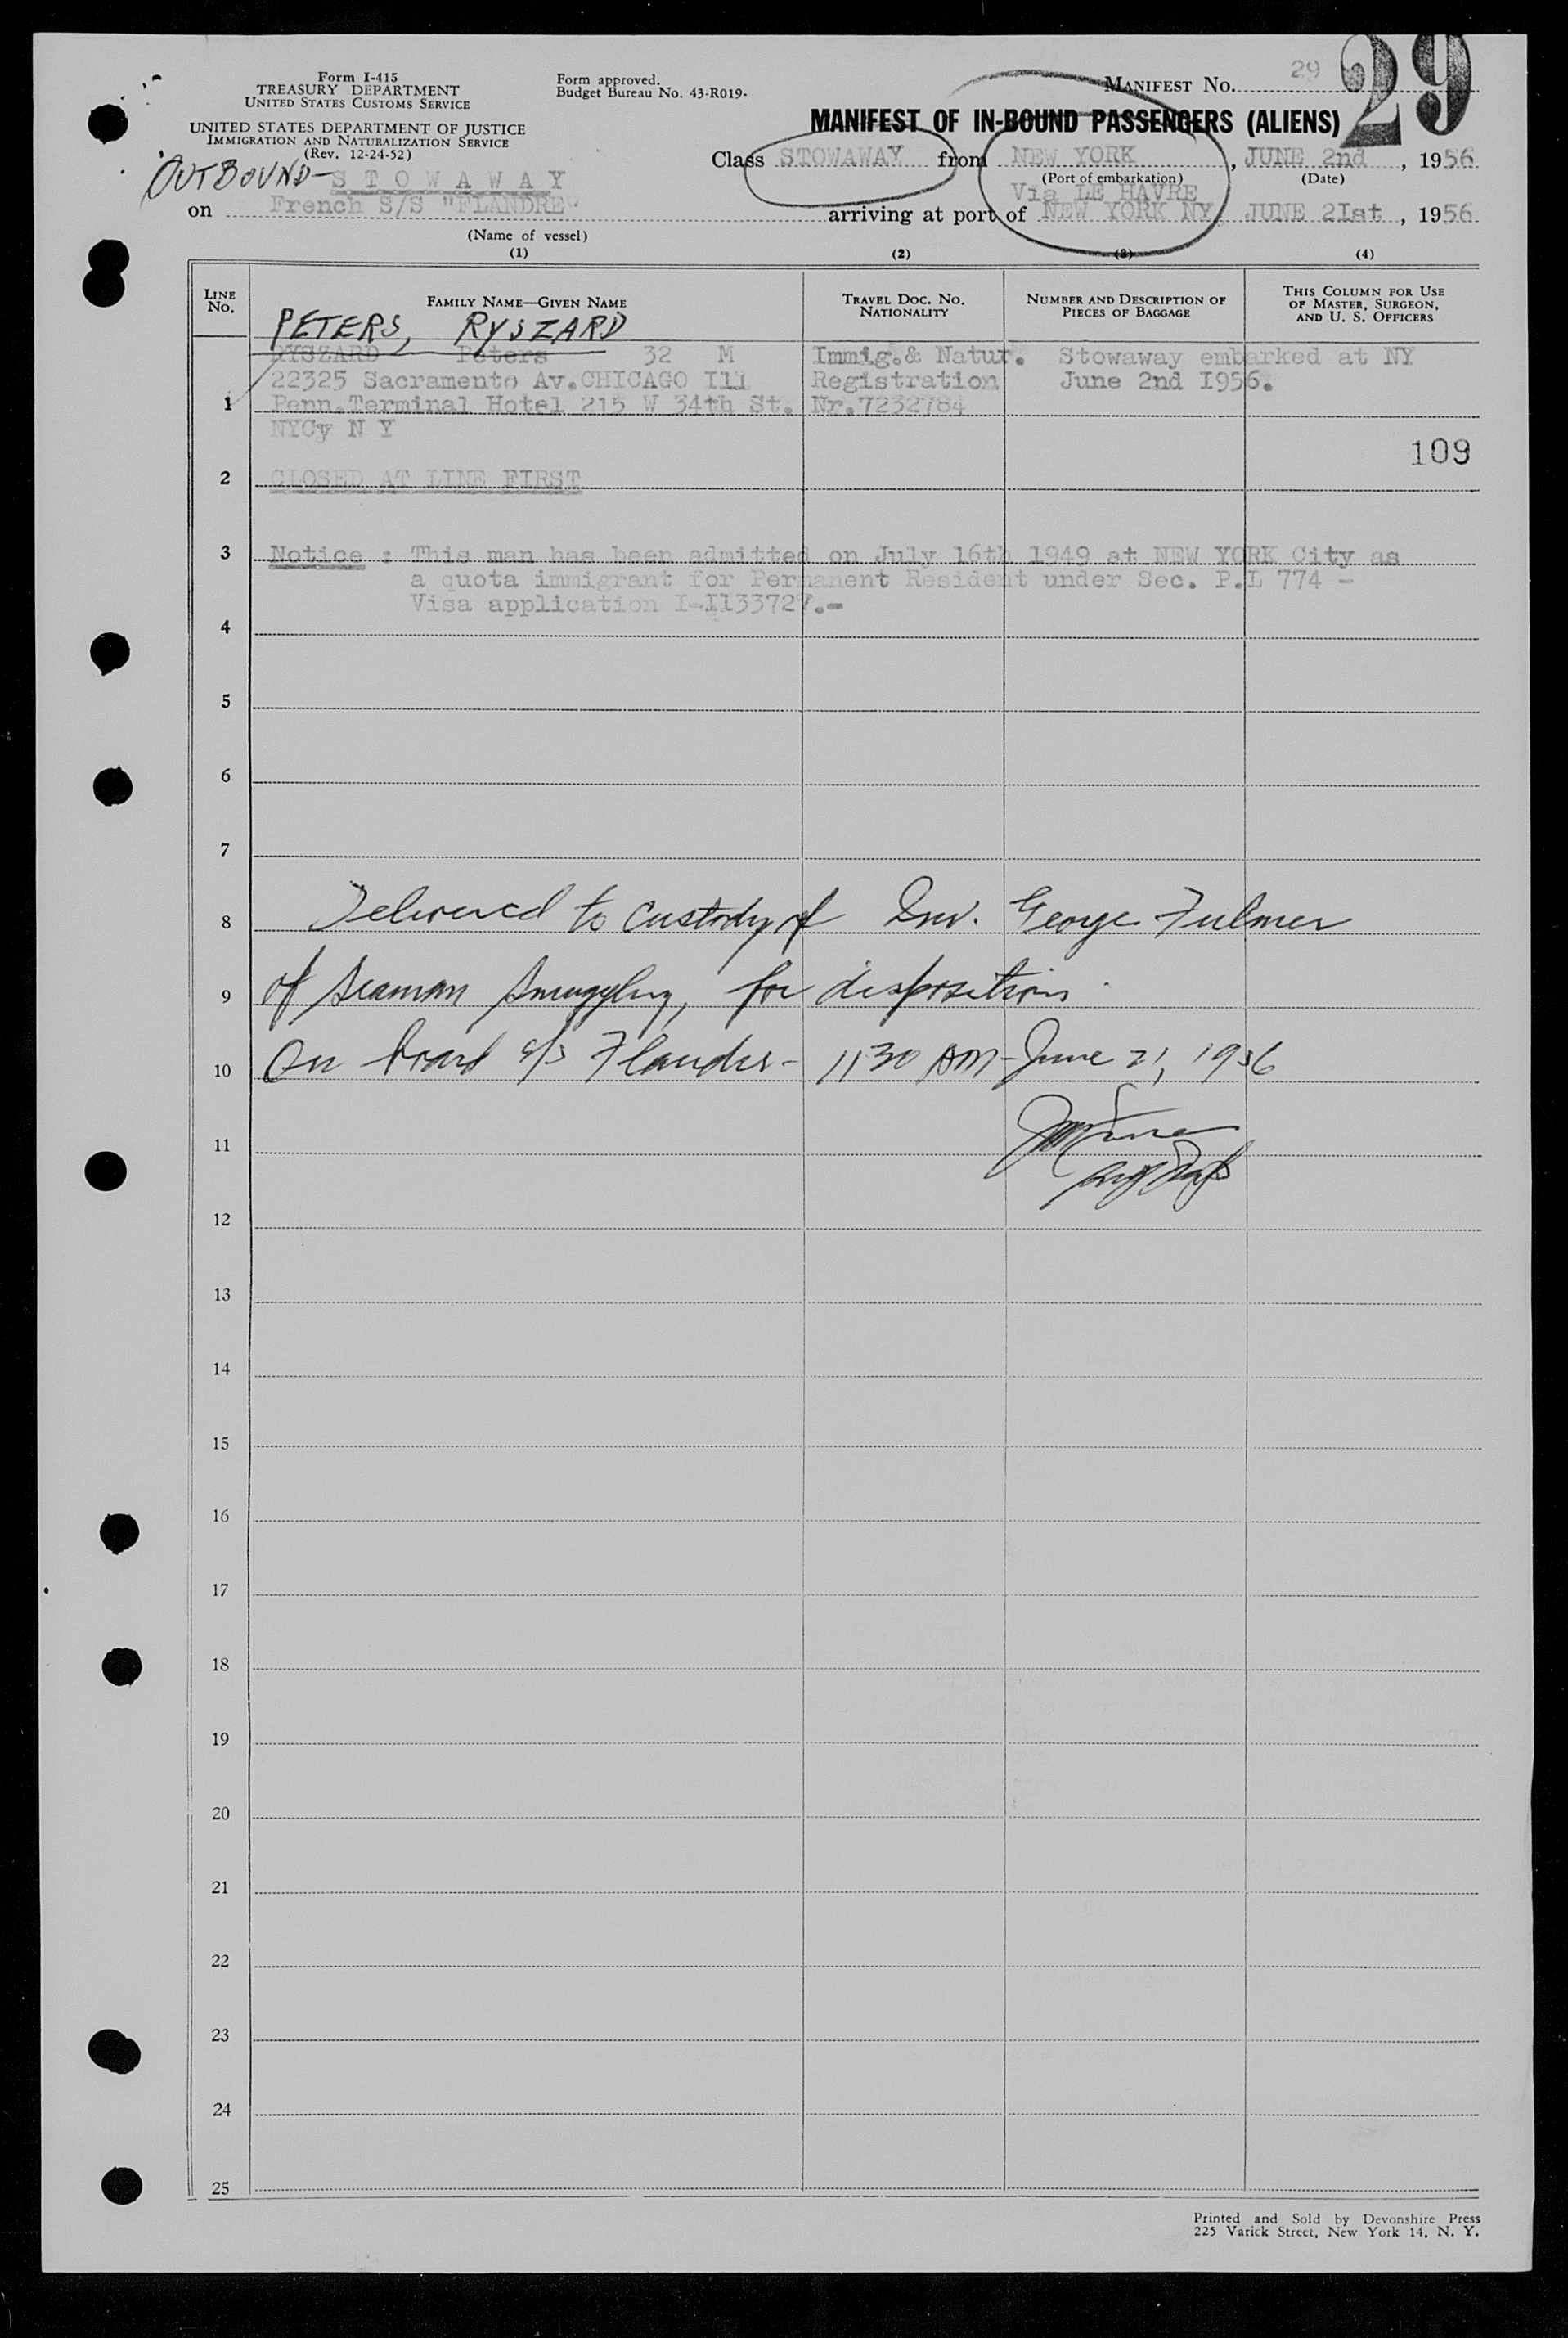 Form I-415
TREASURY DEPARTMENT
UNITED STATES CUSTOMS SERVICE
UNITED STATES DEPARTMENT OF JUSTICE
IMMIGRATION AND NATURALIZATION SERVICE
(Rev. 12-24-52)
Form approved.
Budget Bureau No. 43-R019-
MANIFEST No. 29
29
MANIFEST OF IN-BOUND PASSENGERS (ALIENS)
Class STOWAWAY from NEW YORK, JUNE 2nd, 1956
(Port of embarkation) (Date)
Via LE HAVRE
OUTBOUND- STOWAWAY
on French S/S "FLANDRE" arriving at port of NEW YORK NY JUNE 2Ist, 1956
(Name of vessel)
(1) (2) (3) (4)
LINE No. FAMILY NAME—GIVEN NAME TRAVEL DOC. NO. NATIONALITY NUMBER AND DESCRIPTION OF PIECES OF BAGGAGE THIS COLUMN FOR USE OF MASTER, SURGEON, AND U. S. OFFICERS
PETERS, RYSZARD
RYSZARD Peters 32 M Immig.& Natur. Stowaway embarked at NY
22325 Sacramento Av.CHICAGO Ill Registration June 2nd I956.
1 Penn.Terminal Hotel 215 W 34th St. Nr.7232784
NYCy N Y
109
2 CLOSED AT LINE FIRST
3 Notice : This man has been admitted on July 16th 1949 at NEW YORK City as
a quota immigrant for Permanent Resident under Sec. P.L 774 -
Visa application I-II33727.-
4
5
6
7
8 Delivered to custody of Inv. George Fulmer
9 of Seaman Smuggling, for disposition
10 On board s/s Flandre - 11:30 AM - June 21, 1956
11
12
13
14
15
16
17
18
19
20
21
22
23
24
25
Printed and Sold by Devonshire Press
225 Varick Street, New York 14, N. Y.